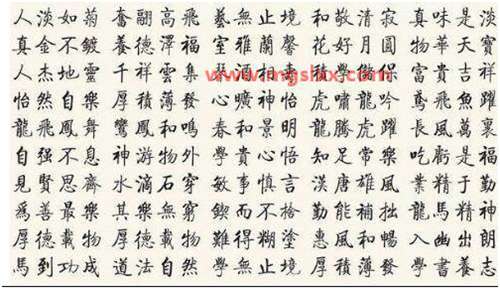 人淡如菊 奮翮高飛 藝無止境 和敬清寂 真味是淡
真金不鍍 養德澤福 室雅蘭馨 花好月圓 物華天寶
人杰地靈 千祥雲集 富貴吉祥
怡然自樂 厚積薄發 心曠神怡 虎嘯龍吟 鳶飛魚躍
龍飛鳳舞 鸞鳳和鳴 春和景明 龍騰虎躍 長風萬裏
自强不息 神游物外 學貴心悟 知足常樂 吃虧是福
見賢思齊 水滴石穿 敏事慎言 漢唐雄風 業精于勤
爲善最樂 其樂無窮 鍥而不捨 勤能補拙 龍馬精神
厚德載物 厚德載物 難得糊塗 惠風和暢 入幽出朗
馬到功成 道法自然 學無止境 厚積薄發 學書養志